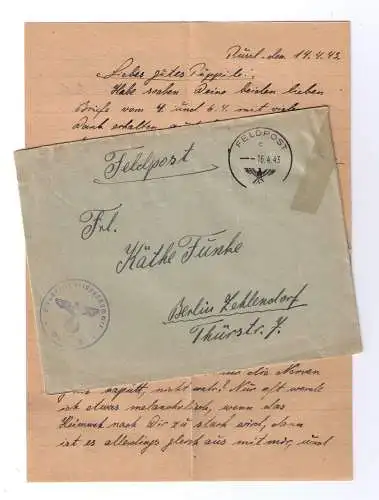 Rusel, den 14.4.43
Liebes gutes
Habe soeben Deine beiden lieben
Briefe vom 4. und 6.4. mit viel
Dank erhalten
Feldpost
FELDPOST
c
16.4.43
Frl.
Käthe Funke
Berlin Zehlendorf
Thürstr. 7.
die Nerven
ganz kaputt, nicht wahr? Nur oft werde
ich etwas melancholisch, wenn das
Heimweh nach Dir zu stark wird, dann
ist es allerdings gleich aus mit mir, und